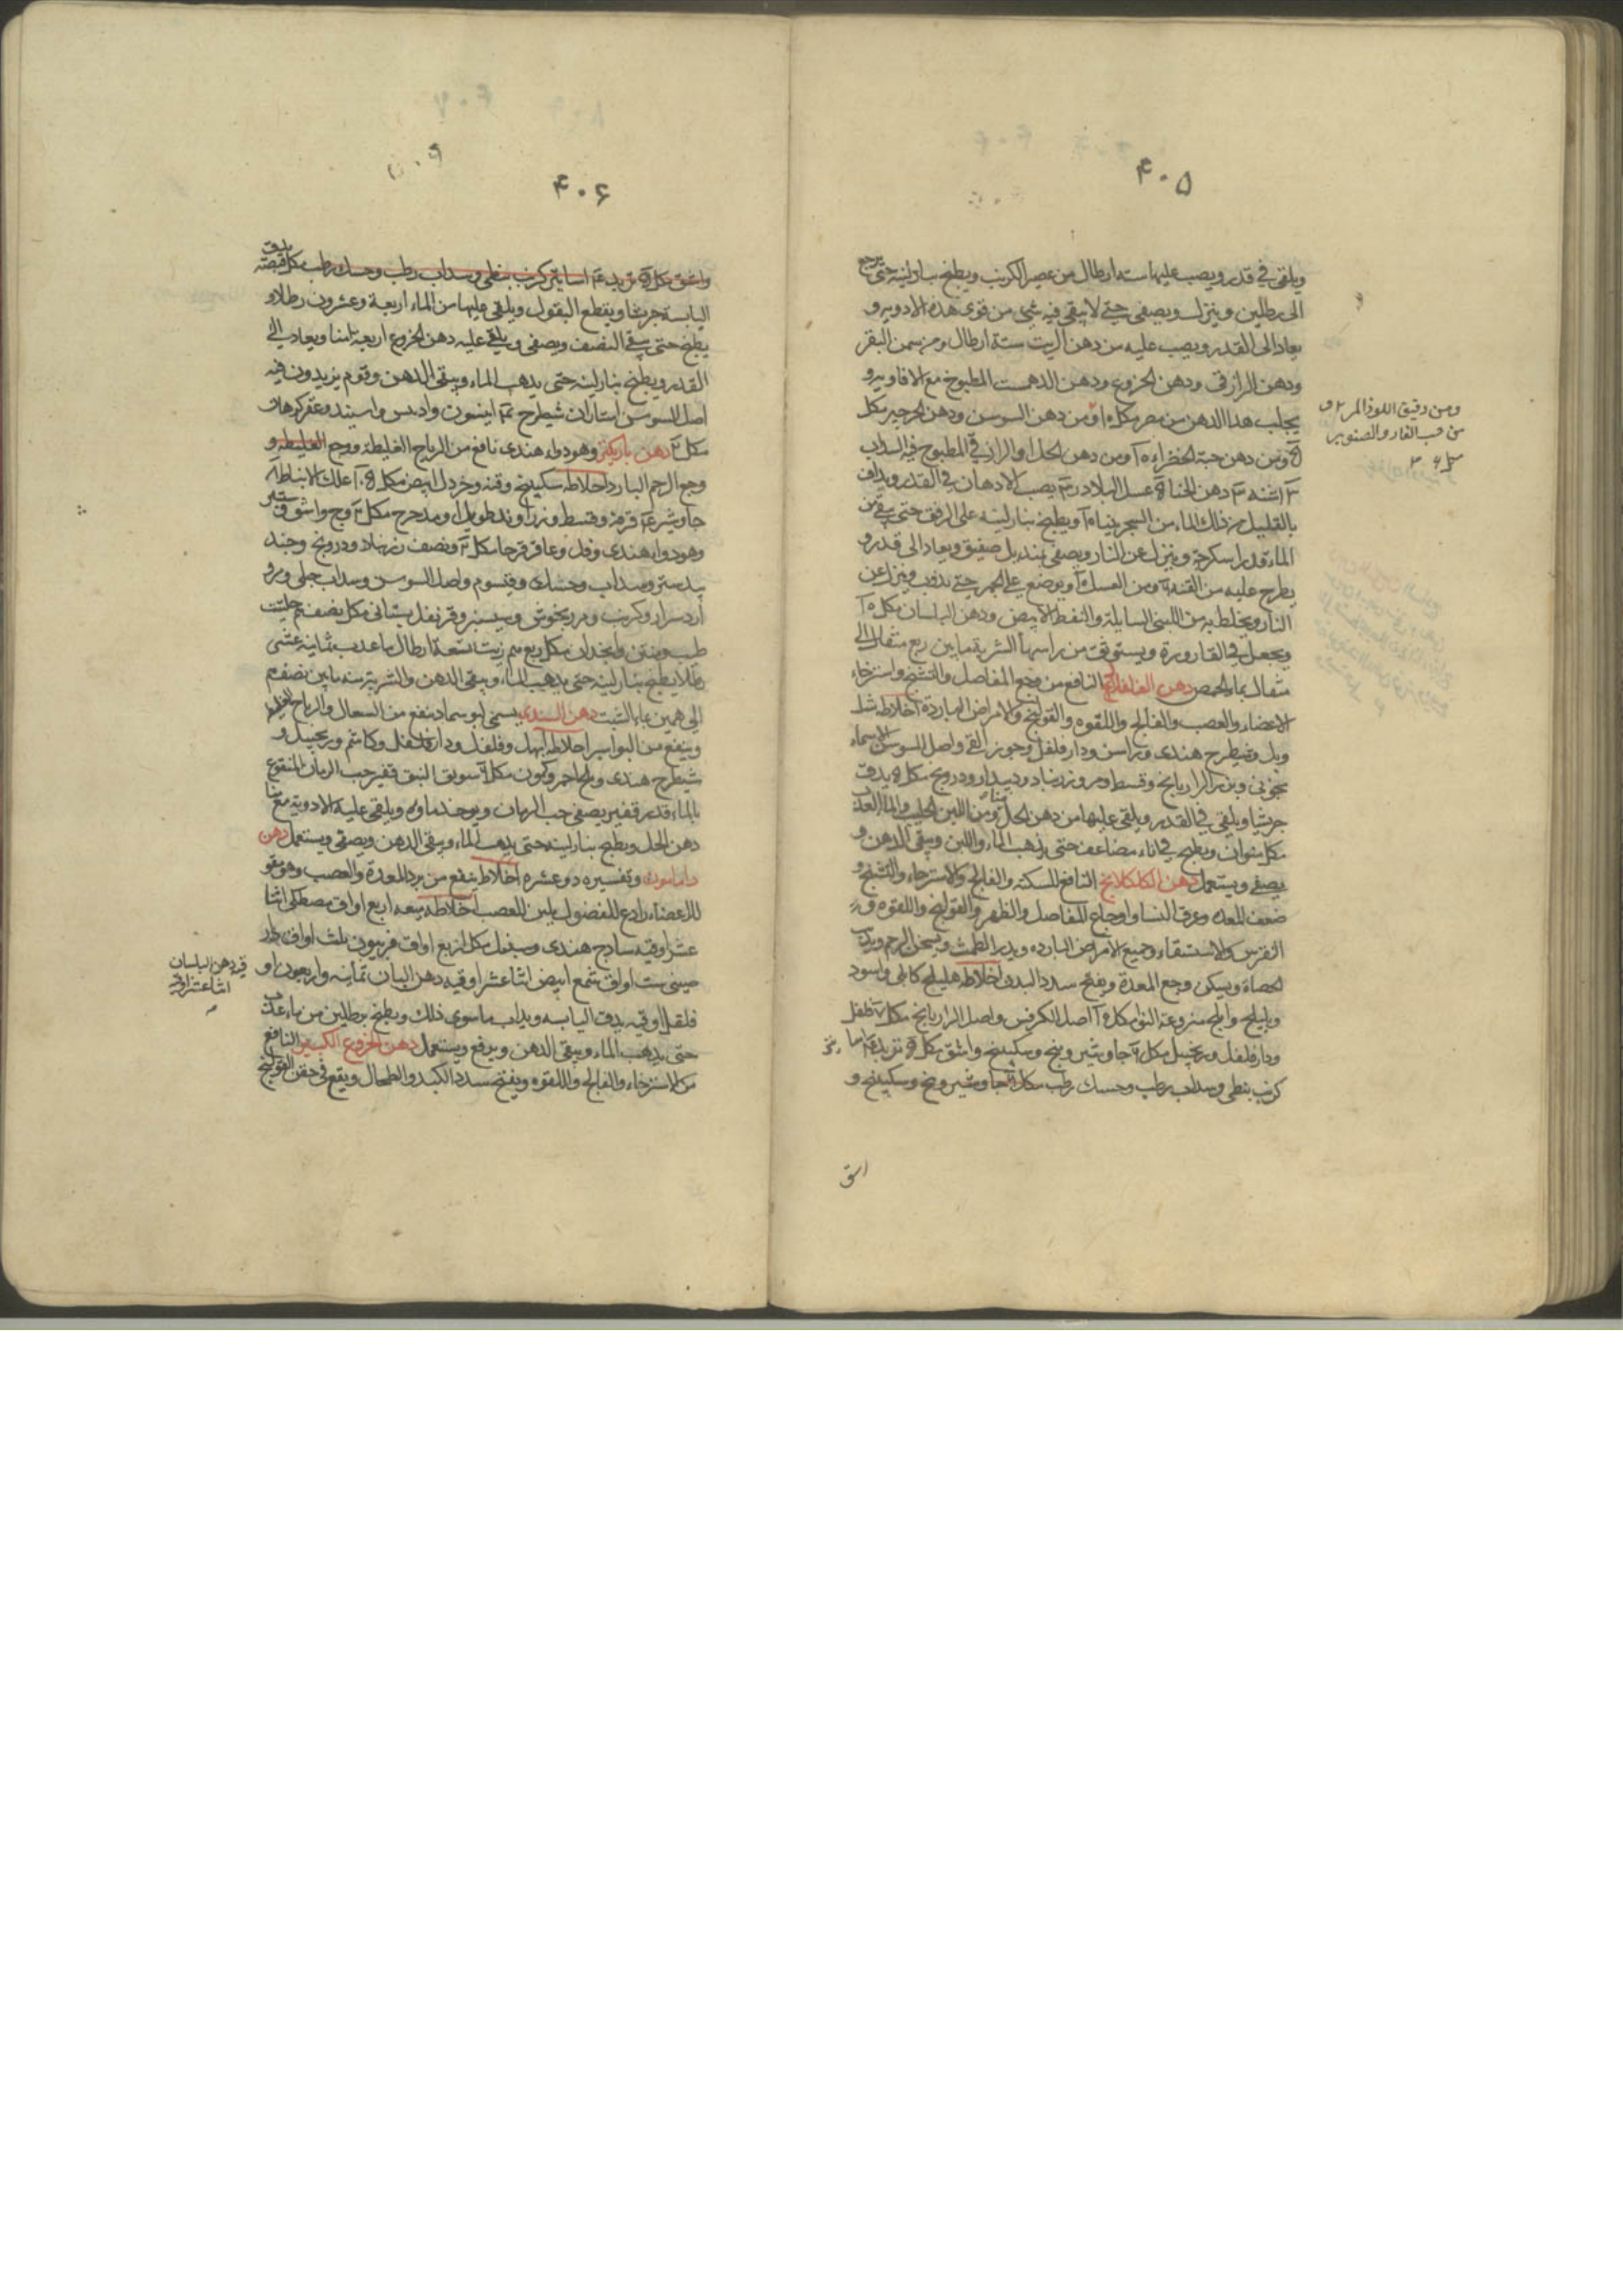 ۴۰۵
ويلقى في قدر ويصب عليها ستة ارطال من عصير الكرنب ويطبخ بنار لينة حتى يرجع
الى رطلين وينزل ويصفى حتى لا يبقى فيه شئ من قوى هذه الادوية و
يعاد الى القدر ويصب عليه من دهن الزيت ستة ارطال ومن سمن البقر
ودهن الرازقى ودهن الخروع ودهن الدهمست المطبوخ مع الافاويه و
يجلب هذا الدهن من مصر مكل ومن دهن السوسن ودهن الجرجير مكل
ومن دهن حبة الخضراء ومن دهن الحل او الرازقى المطبوخ فيه السداب
اشنه دهن الحنا عسل البلادر يصب الادهان في القدر ويداف
بالقليل من ذلك الماء من السجزنياه ويطبخ بنار لينه على الرفق حتى يبقى من
الماء قدر اسكرجة وينزل عن النار ويصفى بمنديل صفيق ويعاد الى قدر و
يطرح عليه من القنه ومن العسل ويوضع على الجمر حتى يذوب وينزل عن
النار ويخلط به من اللبنى السايلة والنفط الابيض ودهن البلسان مكل
ويجعل في القارورة ويستوثق من راسها الشربة ما بين ربع مثقال الى
مثقال بماء الحمص دهن الفلفلاقى النافع من وجع المفاصل والتشنج واسترخاء
الاعضاء والعصب والفالج واللقوه والقولنج والامراض الباردة اخلاطه شل
وبل وشيطرج هندى وراسن ودار فلفل وجوز القى واصل السوسن الاسما
نجونى وبزر الرازيانج وقسط ومر وزرنباد وديودار ودرونج مكل يدق
جريشا ويلقى في القدر ويلقى عليها من دهن الحل ومن اللبن الحليب والماء العذب
مكل منوان ويطبخ في اناء مضاعف حتى يذهب الماء واللبن ويبقى الدهن و
يصفى ويستعمل دهن الكلكلانج النافع للسكته والفالج والاسترخاء والتشنج و
ضعف المعده وعرق النسا واوجاع المفاصل والظهر والقولنج واللقوه و
النقرس والاستسقاء وجميع الامراض البارده ويدر الطمث ويسخن الرحم ويذيب
الحصاة ويسكن وجع المعدة ويفتح سدد البدن اخلاطه هليلج كابلى واسود
وبليلج واملج منزوعة النوا مكل اصل الكرفس واصل الرازيانج مكل فلفل
ودار فلفل وزنجبيل مكل جاوشير وبنج وسكبينج واشق مكل تربد
كرنب بنطى وسداب رطب وحسك رطب مكل جاوشير وبنج وسكبينج و
ومن دقيق اللوز المر
من حب الغار والصنوبر
اشق
۴۰۶
واشق مكل تربد كرنب بنطى وسداب رطب وحسك رطب مكل قبضه يدق
اليابسة جريشا ويقطع البقول ويلقى عليها من الماء اربعة وعشرون رطلا و
يطبخ حتى يبقى النصف ويصفى ويلقى عليه دهن الخروع اربعة امنا ويعاد الى
القدر ويطبخ بنار لينه حتى يذهب الماء ويبقى الدهن وقوم يزيدون فيه
اصل السوسن استاران شيطرج انيسون وادبس واسبند وعقركرهان
مكل دهن باريكنز وهو دواء هندى نافع من الرياح الغليظة ووجع
وجع الرحم البارد اخلاطه سكبينج وقنه وخردل ابيض مكل علك الانباط
جاوشير قرفه وقسط وزراوند طويل او مدحرج مكل وج واشق
وهو دواء هندى وفل وعاقر قرحا مكل ونصف زرنباد ودرونج وجند
بيدستر وسداب وحسك وقيسوم واصل السوسن وسداب جبلى ومرو
اردسرار وكرنب ومرزنجوش وسيسنبر وقرنفل بستانى مكل نصف حلتيت
طيب ومنتن وانجدان مكل ربع زيت تسعة ارطال ماء عذب ثمانية عشر
رطلا يطبخ بنار لينه حتى يذهب الماء ويبقى الدهن والشربة منه ما بين نصف درهم
الى درهمين بماء الشبت دهن السندى يسمى ابو سماد ينفع من السعال والرياح
وينفع من البواسير اخلاطه ابهل وفلفل ودار فلفل وكاشم وزنجبيل و
شيطرج هندى وملح احمر وكمون مكل سويق النبق قفيز حب الرمان المنقوع
بالماء قدر قفيز يصفى حب الرمان ويوخذ ماوه ويلقى عليه الادوية مع منا
دهن الحل ويطبخ بنار لينه حتى يذهب الماء ويبقى الدهن ويصفى ويستعمل دهن
دامامون وتفسيره ذو عشرة اخلاط ينفع من برد المعدة والعصب وهو مقو
للاعضاء رادع للفضول ملين للعصب اخلاطه ميعه اربع اواق مصطكى اثنا
عشر اوقيه ساذج هندى وسنبل مكل اربع اواق فربيون ثلث اواق دار
صينى ست اواق شمع ابيض اثنا عشر اوقيه دهن البان ثمانيه واربعون او
فلفل اوقيه يدق اليابسه ويذاب ما سوى ذلك ويطبخ برطلين من ماء عذب
حتى يذهب الماء ويبقى الدهن ويرفع ويستعمل دهن الخروع الكبير النافع
من الاسترخاء والفالج واللقوه ويفتح سدد الكبد والطحال ويقع في حقن القولنج
دهن البلسان
اثنا عشر اوقيه